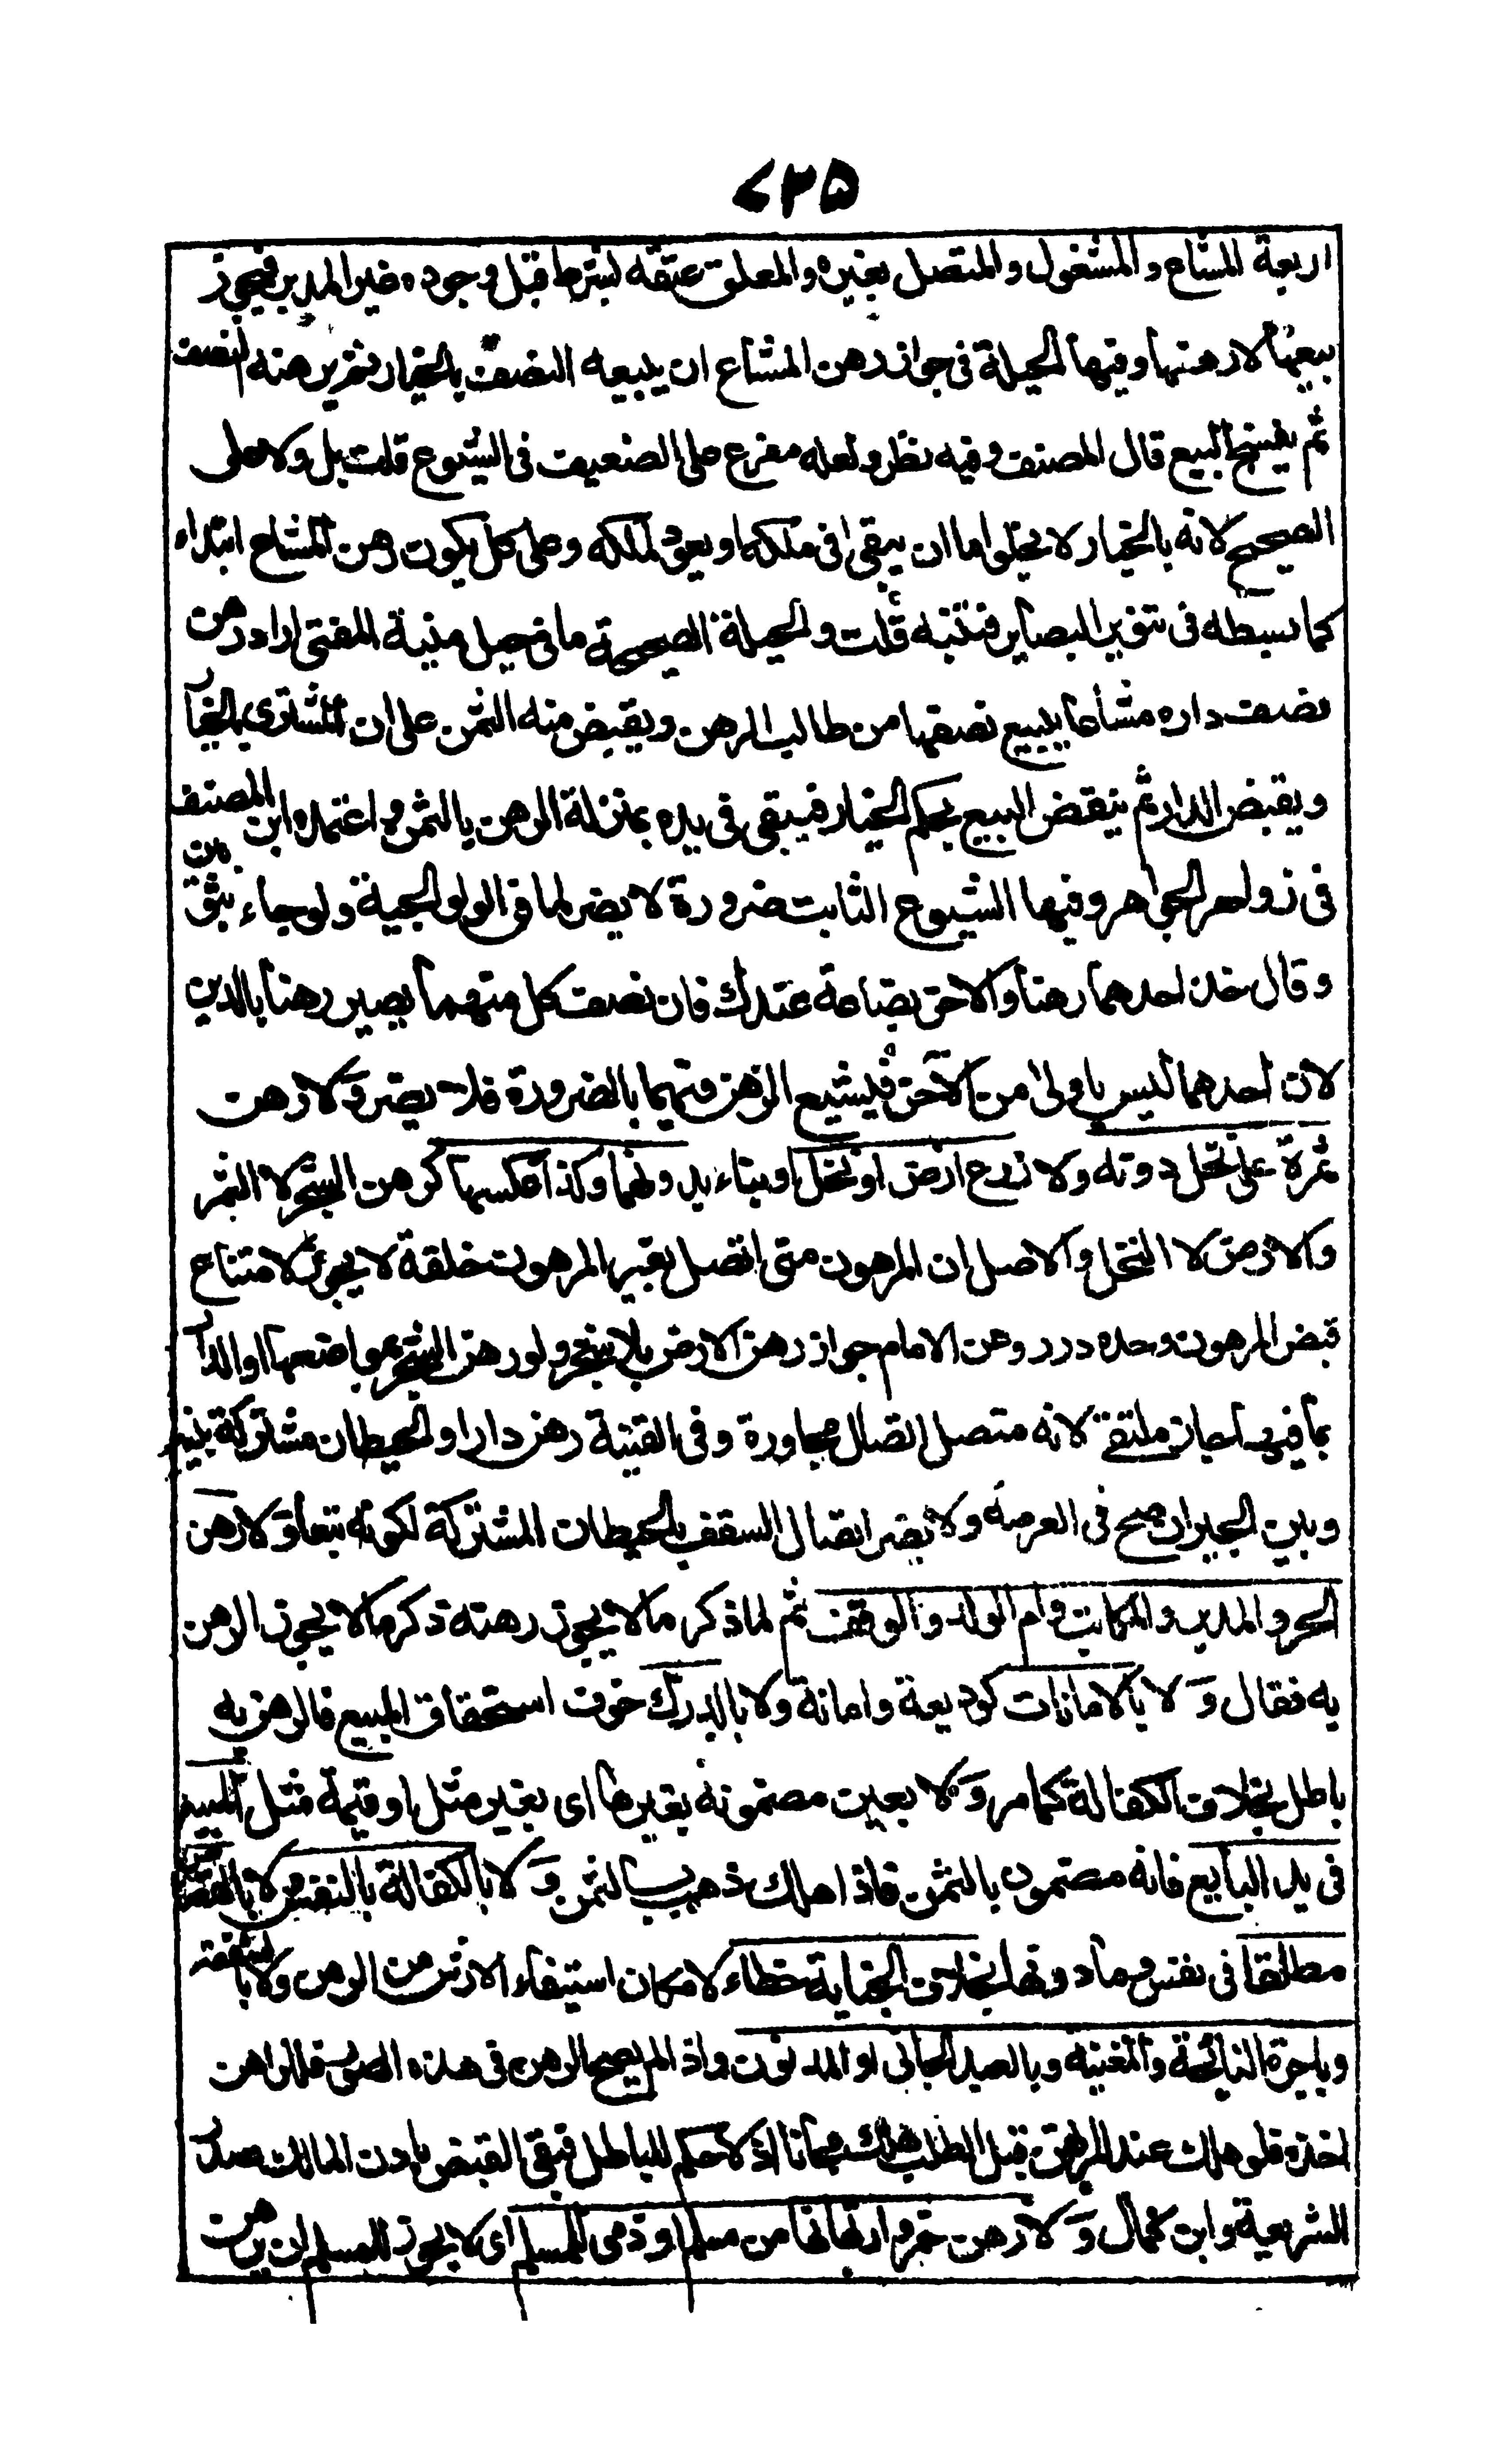 ٧٣٥
اربعة المشاع والمشغول والمتصل بغيره والمعلق عتقه بشرط قبل وجوده غير المدبر فيجوز
بيعها لا رهنها وفيها الحيلة فى جواز رهن المشاع ان يبيعه النصف بالخيار ثم يرهنه النصف
ثم يفسخ البيع قال المصنف وفيه نظر ولعله مفرع على الضعيف فى الشيوع قلت بل ولا على
الصحيح لانه بالخيار لا يخلوا اما ان يبقى فى ملكه او يعود لملكه وعلى كل يكون رهن المشاع ابتداء
كما بسطه فى تنوير البصاير فتنبه قلت والحيلة الصحيحة ما فى حيل منية المفتى اراد رهن
نصف داره مشاعا يبيع نصفها من طالب الرهن ويقبض منه الثمن على ان المشترى بالخيار
ويقبض الدار ثم ينقض البيع بحكم الخيار فيبقى فى يده بمنزلة الرهن بالثمن واعتمده ابن المصنف
فى زواهر الجواهر وفيها الشيوع الثابت ضرورة لا يضر لما فى الولوالجية ولو جاء بثوبين
وقال خذ احدهما رهنا والاخر بضاعة عندك فان نصف كل منهما يصير رهنا بالدين
لان احدهما ليس باولى من الآخر فيشيع الرهن فيهما بالضرورة فلا يضر وَلا رهن
ثمرة على نخل دونه ولا زرع ارض او نخل او بناء بدونهما وكذا عكسها كرهن الشجر لا الثمر
والارض لا النخل والاصل ان المرهون متى اتصل بغير المرهون خلقة لا يجوز لامتناع
قبض المرهون وحده درر وعن الامام جواز رهن الارض بلا شجر ولو رهن الشجر بمواضعها او الدار
بما فيها جاز ملتقى لانه متصل اتصال مجاورة وفى القنية رهن دارا والحيطان مشتركة بينه
وبين الجيران صح فى العرصة ولا يضر اتصال السقف بالحيطان المشتركة لكونه تبعا وَلا رهن
الحر والمدبر والمكاتب وام الولد والوقف ثم لما ذكر ما لا يجوز رهنه ذكر ما لا يجوز الرهن
به فقال وَلا بالامانات كوديعة وامانة ولا بالدرك خوف استحقاق المبيع فالرهن به
باطل بخلاف الكفالة كما مر وَلا بعين مضمونة بغيرها اى بغير مثل او قيمة مثل المبيع
فى يد البايع فانه مضمون بالثمن فاذا هلك ذهب بالثمن وَلا بالكفالة بالنفس ولا بالقصاص
مطلقا فى نفس وما دونها بخلاف الجناية خطاء لامكان استيفاء الارش من الرهن ولا بالشفعة
وباجرة النائحة والمغنية وبالعبد الجانى او المديون واذا لم يصح الرهن فى هذه الصور فللراهن
اخذه فلو هلك عند المرتهن قبل الطلب هلك مجانا اذ لا حكم للباطل فبقى القبض باذن المالك صدر
الشريعة وابن كمال وَلا رهن خمر وارتهانها من مسلم او ذمى للمسلم اى لا يجوز للمسلم ان يرهن